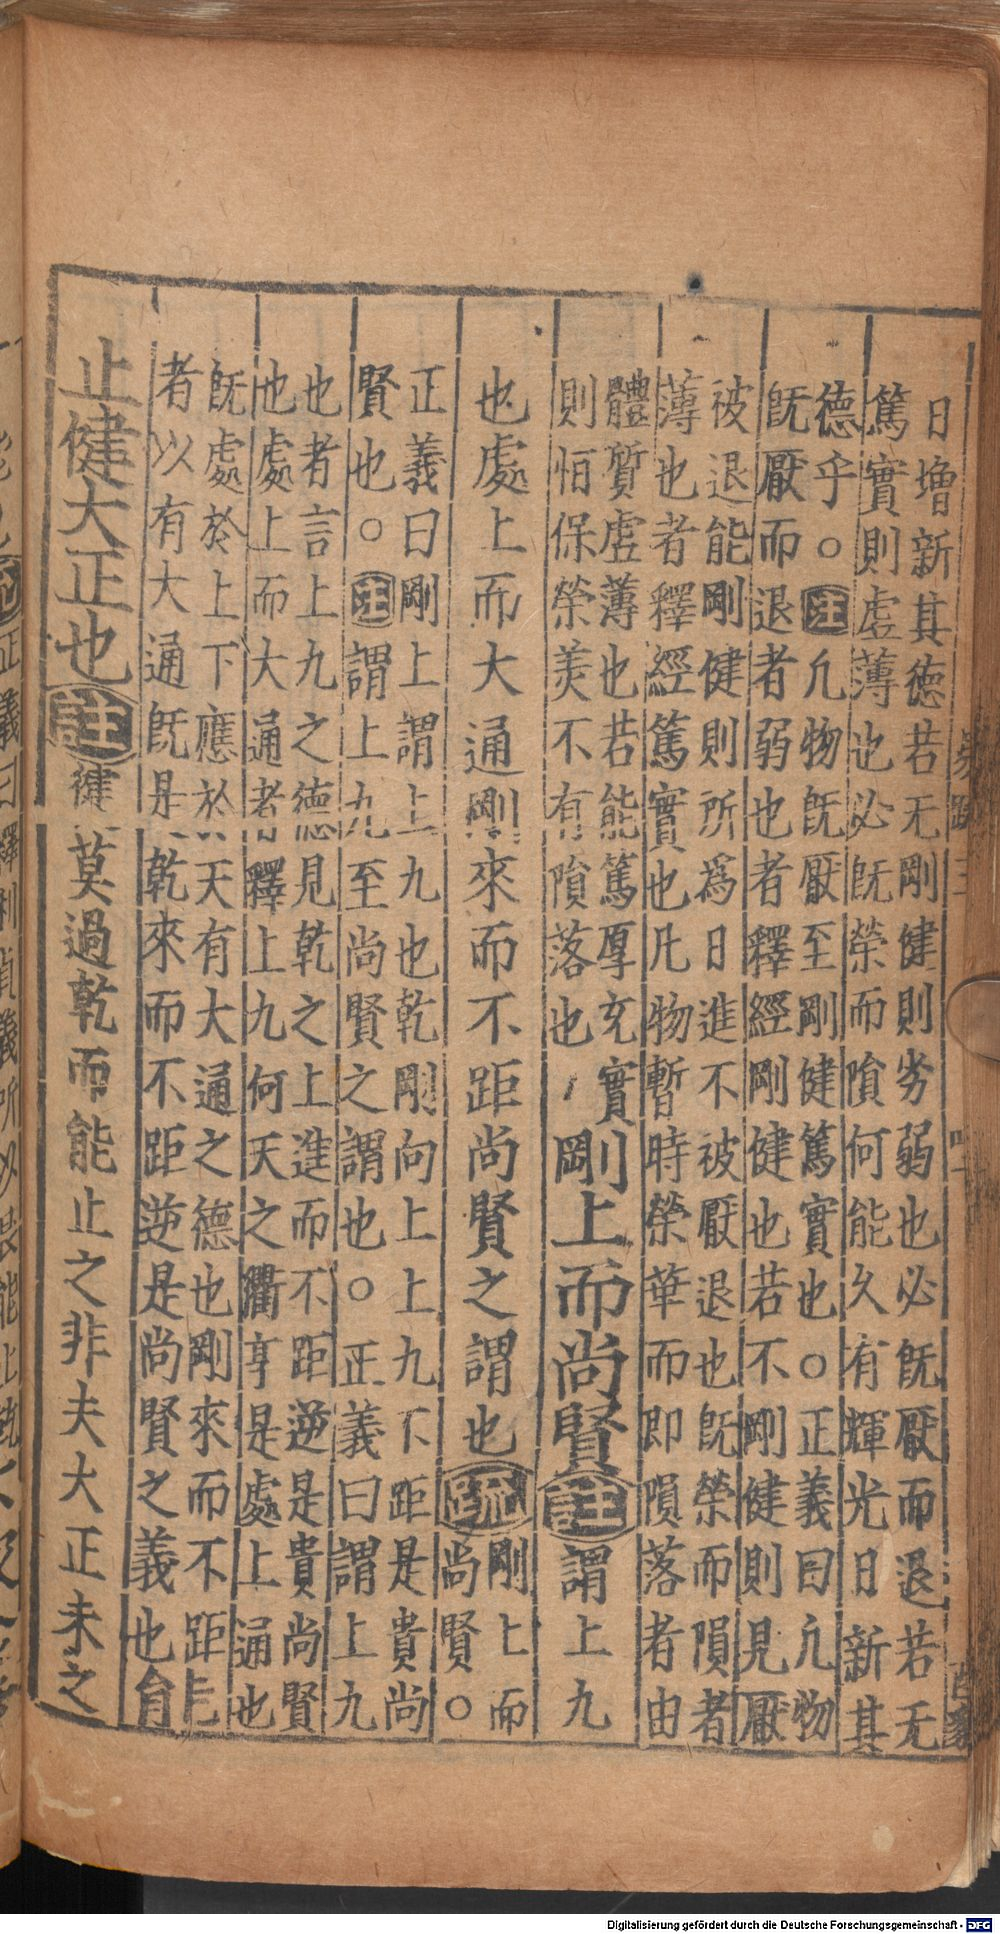 日増新其德若无剛健則劣弱也必旣厭而退若无
篤實則虛薄也必旣榮而隕何能久有輝光日新其
德乎○注凡物旣厭至剛健篤實也○正義曰凡物
旣厭而退者弱也者釋經剛健也若不剛健則見厭
被退能剛健則所爲日進不被厭退也旣榮而隕者
薄也者釋經篤實也凡物暫時榮華而即隕落者由
體質虛薄也若能篤厚充實
則恒保榮美不有隕落也
剛上而尚賢註謂上九
也處上而大通剛來而不距尚賢之謂也疏
剛上而
尚賢○
正義曰剛上謂上九也乾剛向上上九不距是貴尚
賢也○注謂上九至尚賢之謂也○正義曰謂上九
也者言上九之德見乾之上進而不距逆是貴尚賢
也處上而大通者釋上九何天之衢亨是處上通也
旣處於上下應於天有大通之德也剛來而不距
者以有大通旣是乾來而不距逆是尚賢之義也
止健大正也註健莫過乾而能止之非夫大正未之
疏正義曰釋利貞義所以
Digitalisierung gefördert durch die Deutsche Forschungsgemeinschaft - DFG